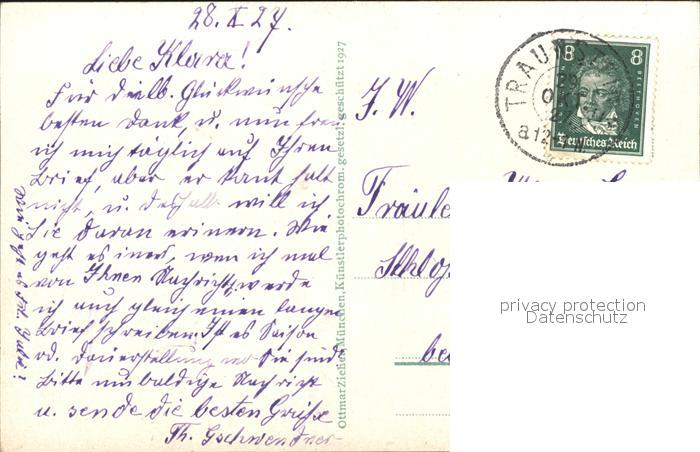 28. X. 27.
Liebe Klara!
Für die lb. Glückwünsche
besten Dank, u. nun freu
ich mich täglich auf Ihren
Brief, aber er kamt halt
nicht, u. deshalb will ich
Sie daran erinern. Wie
geht es inen, wen ich mal
von Ihnen Nachricht, werde
ich auch gleich einen langen
Brief schreiben. Ist es Saison
od. Dauerstellung wo Sie sind
Bitte um baldige Nachricht
u. sende die besten Grüße
Th. Gschwendner
Wie geht es Frl.
Ottmar Zieher, München, Künstlerphotochrom. gesetzl. geschützt 1927
TRAUN
8 8
BEETHOVEN
Deutsches Reich
F. W.
Fräule
Schloß
be
privacy protection
Datenschutz